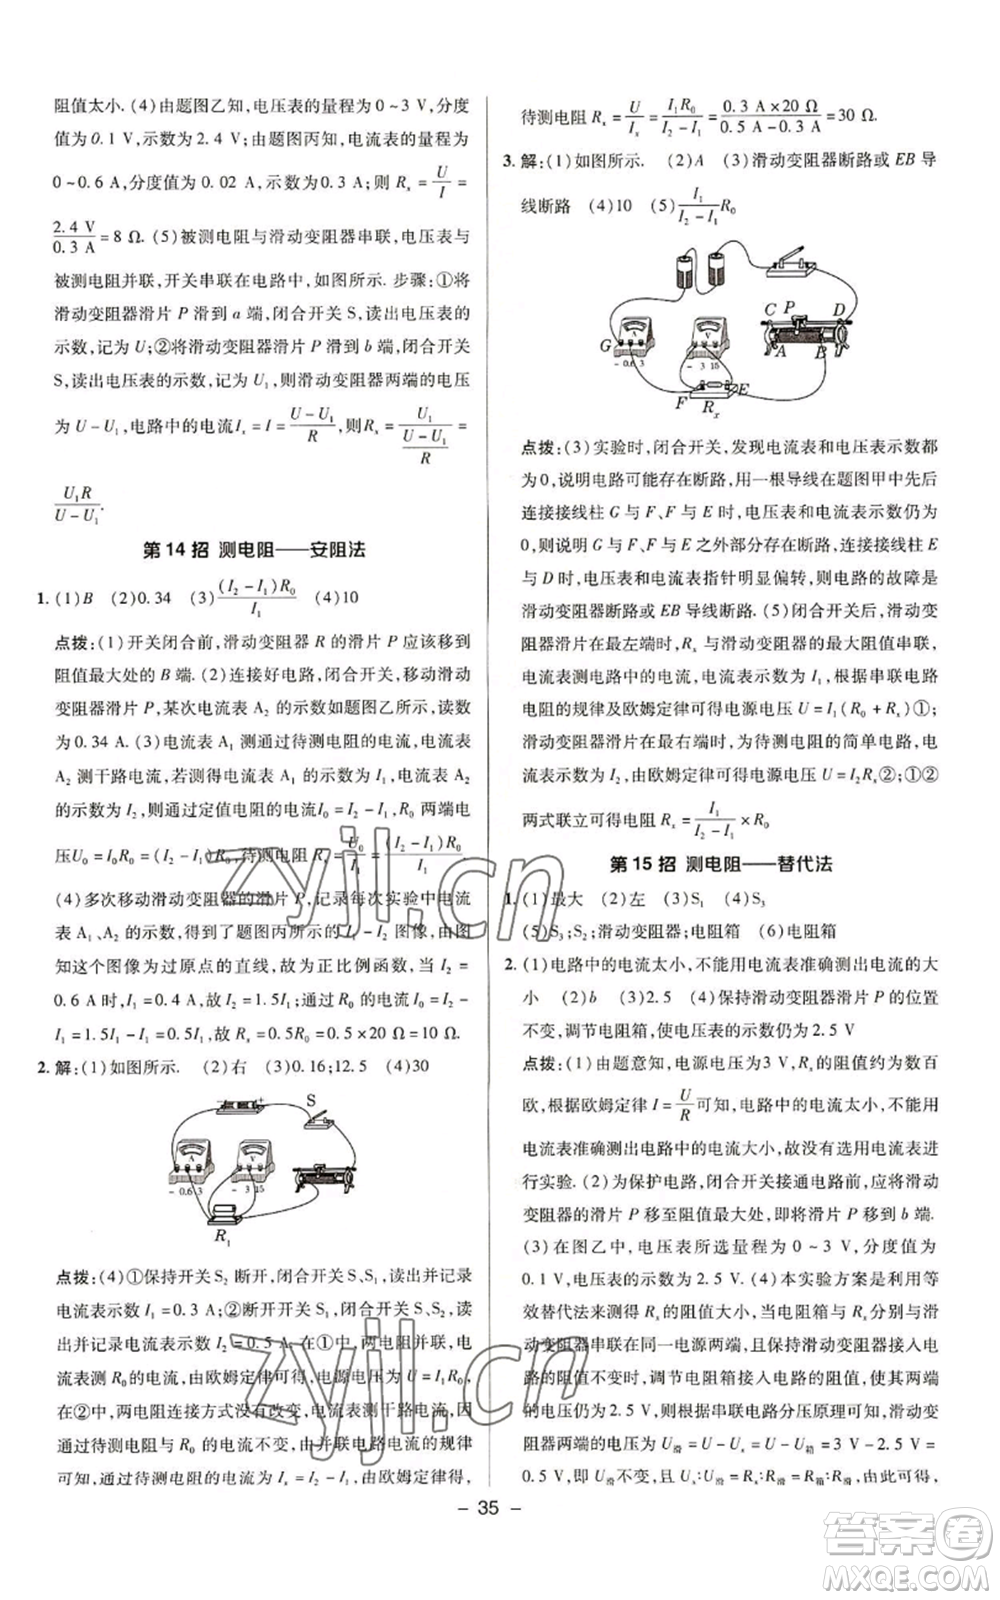 阻值太小. (4)由题图乙知,电压表的量程为 0～3 V,分度
值为0.1 V,示数为 2.4 V;由题图丙知,电流表的量程为
0～0.6 A,分度值为 0.02 A,示数为0.3 A;则 Rₓ = U/I =
2.4 V/0.3 A = 8 Ω. (5)被测电阻与滑动变阻器串联,电压表与
被测电阻并联,开关串联在电路中,如图所示. 步骤:①将
滑动变阻器滑片 P 滑到 a 端,闭合开关 S,读出电压表的
示数,记为 U;②将滑动变阻器滑片 P 滑到 b 端,闭合开关
S,读出电压表的示数,记为 U₁,则滑动变阻器两端的电压
为 U－U₁,电路中的电流Iₓ = I = (U－U₁)/R,则Rₓ = U₁/((U－U₁)/R) =
U₁R/(U－U₁).
第 14 招 测电阻——安阻法
1. (1)B (2)0.34 (3)(I₂－I₁)R₀/I₁ (4)10
点拨:(1)开关闭合前,滑动变阻器 R 的滑片 P 应该移到
阻值最大处的 B 端. (2)连接好电路,闭合开关,移动滑动
变阻器滑片 P,某次电流表 A₂ 的示数如题图乙所示,读数
为 0.34 A. (3)电流表 A₁ 测通过待测电阻的电流,电流表
A₂ 测干路电流,若测得电流表 A₁ 的示数为 I₁,电流表 A₂
的示数为 I₂,则通过定值电阻的电流I₀ = I₂－I₁,R₀ 两端电
压U₀ = I₀R₀ = (I₂－I₁)R₀,待测电阻Rₓ = U₀/I₁ = (I₂－I₁)R₀/I₁.
(4)多次移动滑动变阻器的滑片 P,记录每次实验中电流
表 A₁、A₂ 的示数,画出了题图丙所示的 I₂－I₁ 图像,由图
知这是过原点的直线,故为正比例函数,当 I₁ = 0.4 A,I₂ =
0.6 A 时,故 I₂ = 1.5I₁;通过 R₀ 的电流 I₀ = I₂－
I₁ = 1.5I₁－I₁ = 0.5I₁,故 Rₓ = 0.5R₀ = 0.5×20 Ω = 10 Ω.
2. 解:(1)如图所示. (2)右 (3)0.16;12.5 (4)30
S
A
V
- 0.6 3
- 3 15
R₁
点拨:(4)①保持开关 S₂ 断开,闭合开关 S、S₁,读出并记录
电流表示数 I₁ = 0.3 A;②断开开关 S₁,闭合开关 S、S₂,读
出并记录电流表示数 I₂ = 0.5 A. 在①中,两电阻并联,电
流表测 R₀的电流,由欧姆定律可得,电源电压 U = I₁R₀,
在②中,两电阻连接方式没有改变,电流表测干路电流,通
过待测电阻与 R₀ 的电流不变,由并联电路电流的规律
可知,通过待测电阻的电流为 Iₓ = I₂－I₁,由欧姆定律得,
待测电阻 Rₓ = U/Iₓ = I₁R₀/(I₂－I₁) = 0.3 A×20 Ω/(0.5 A－0.3 A) = 30 Ω.
3. 解:(1)如图所示. (2)A (3)滑动变阻器断路或 EB 导
线断路 (4)10 (5)I₁/(I₂－I₁)R₀
C P D
A
V
G
A B
- 0.6 3
- 3 15
F Rₓ E
点拨:(3)实验时,闭合开关,发现电流表和电压表示数都
为0,说明电路可能存在断路,用一根导线在题图甲中先后
连接接线柱 G 与 F、F 与 E,电压表和电流表示数仍为
0,说明 G 与 F、F 与 E 之外部分存在断路,当连接到 E
与 D 时,电压表和电流表指针明显偏转,则电路的故障是
滑动变阻器断路或 EB 导线断路. (5)闭合开关后,滑动变
阻器滑片在最左端时,Rₓ 与滑动变阻器的最大阻值串联,
电流表测电路中的电流,电流表示数为 I₁,根据串联电路
电阻的规律及欧姆定律可得电源电压 U = I₁(R₀ + Rₓ)①;
滑动变阻器滑片在最右端时,为待测电阻的简单电路,电
流表示数为 I₂,由欧姆定律可得电源电压 U = I₂Rₓ②;①②
两式联立可得电阻 Rₓ = I₁/(I₂－I₁)×R₀
第 15 招 测电阻——替代法
1. (1)最大 (2)左 (3)S₁ (4)S₃
(5)S₃;S₂;滑动变阻器;电阻箱 (6)电阻箱
2. (1)电路中的电流太小,不能用电流表准确测出电流的大
小 (2)b (3)2.5 (4)保持滑动变阻器滑片 P 的位置
不变,调节电阻箱,使电压表的示数仍为 2.5 V
点拨:(1)由题意知,电源电压为3 V,Rₓ的阻值约为数百
欧,根据欧姆定律 I = U/R可知,电路中的电流太小,不能用
电流表准确测出电路中的电流大小,故没有选用电流表进
行实验. (2)为保护电路,闭合开关接通电路前,应将滑动
变阻器的滑片 P 移至阻值最大处,即将滑片 P 移到 b 端.
(3)在图乙中,电压表所选的量程为 0～3 V,分度值为
0.1 V,电压表的示数为 2.5 V. (4)本实验方案是利用等
效替代法来测得 Rₓ的阻值大小,当电阻箱与 Rₓ分别与滑
动变阻器串联在同一电源两端,且保持滑动变阻器接入电
路的阻值不变时,调节电阻箱接入电路的阻值,使其两端
的电压仍为2.5 V,则根据串联电路分压原理可知,滑动变
阻器两端的电压为 U滑 = U－Uₓ = U－U箱 = 3 V－2.5 V =
0.5 V,即 U滑不变,且 U箱 = Uₓ,由此可得,
- 35 -
zyjl.cn
zyjl.cn
答案圈
MXQE.COM